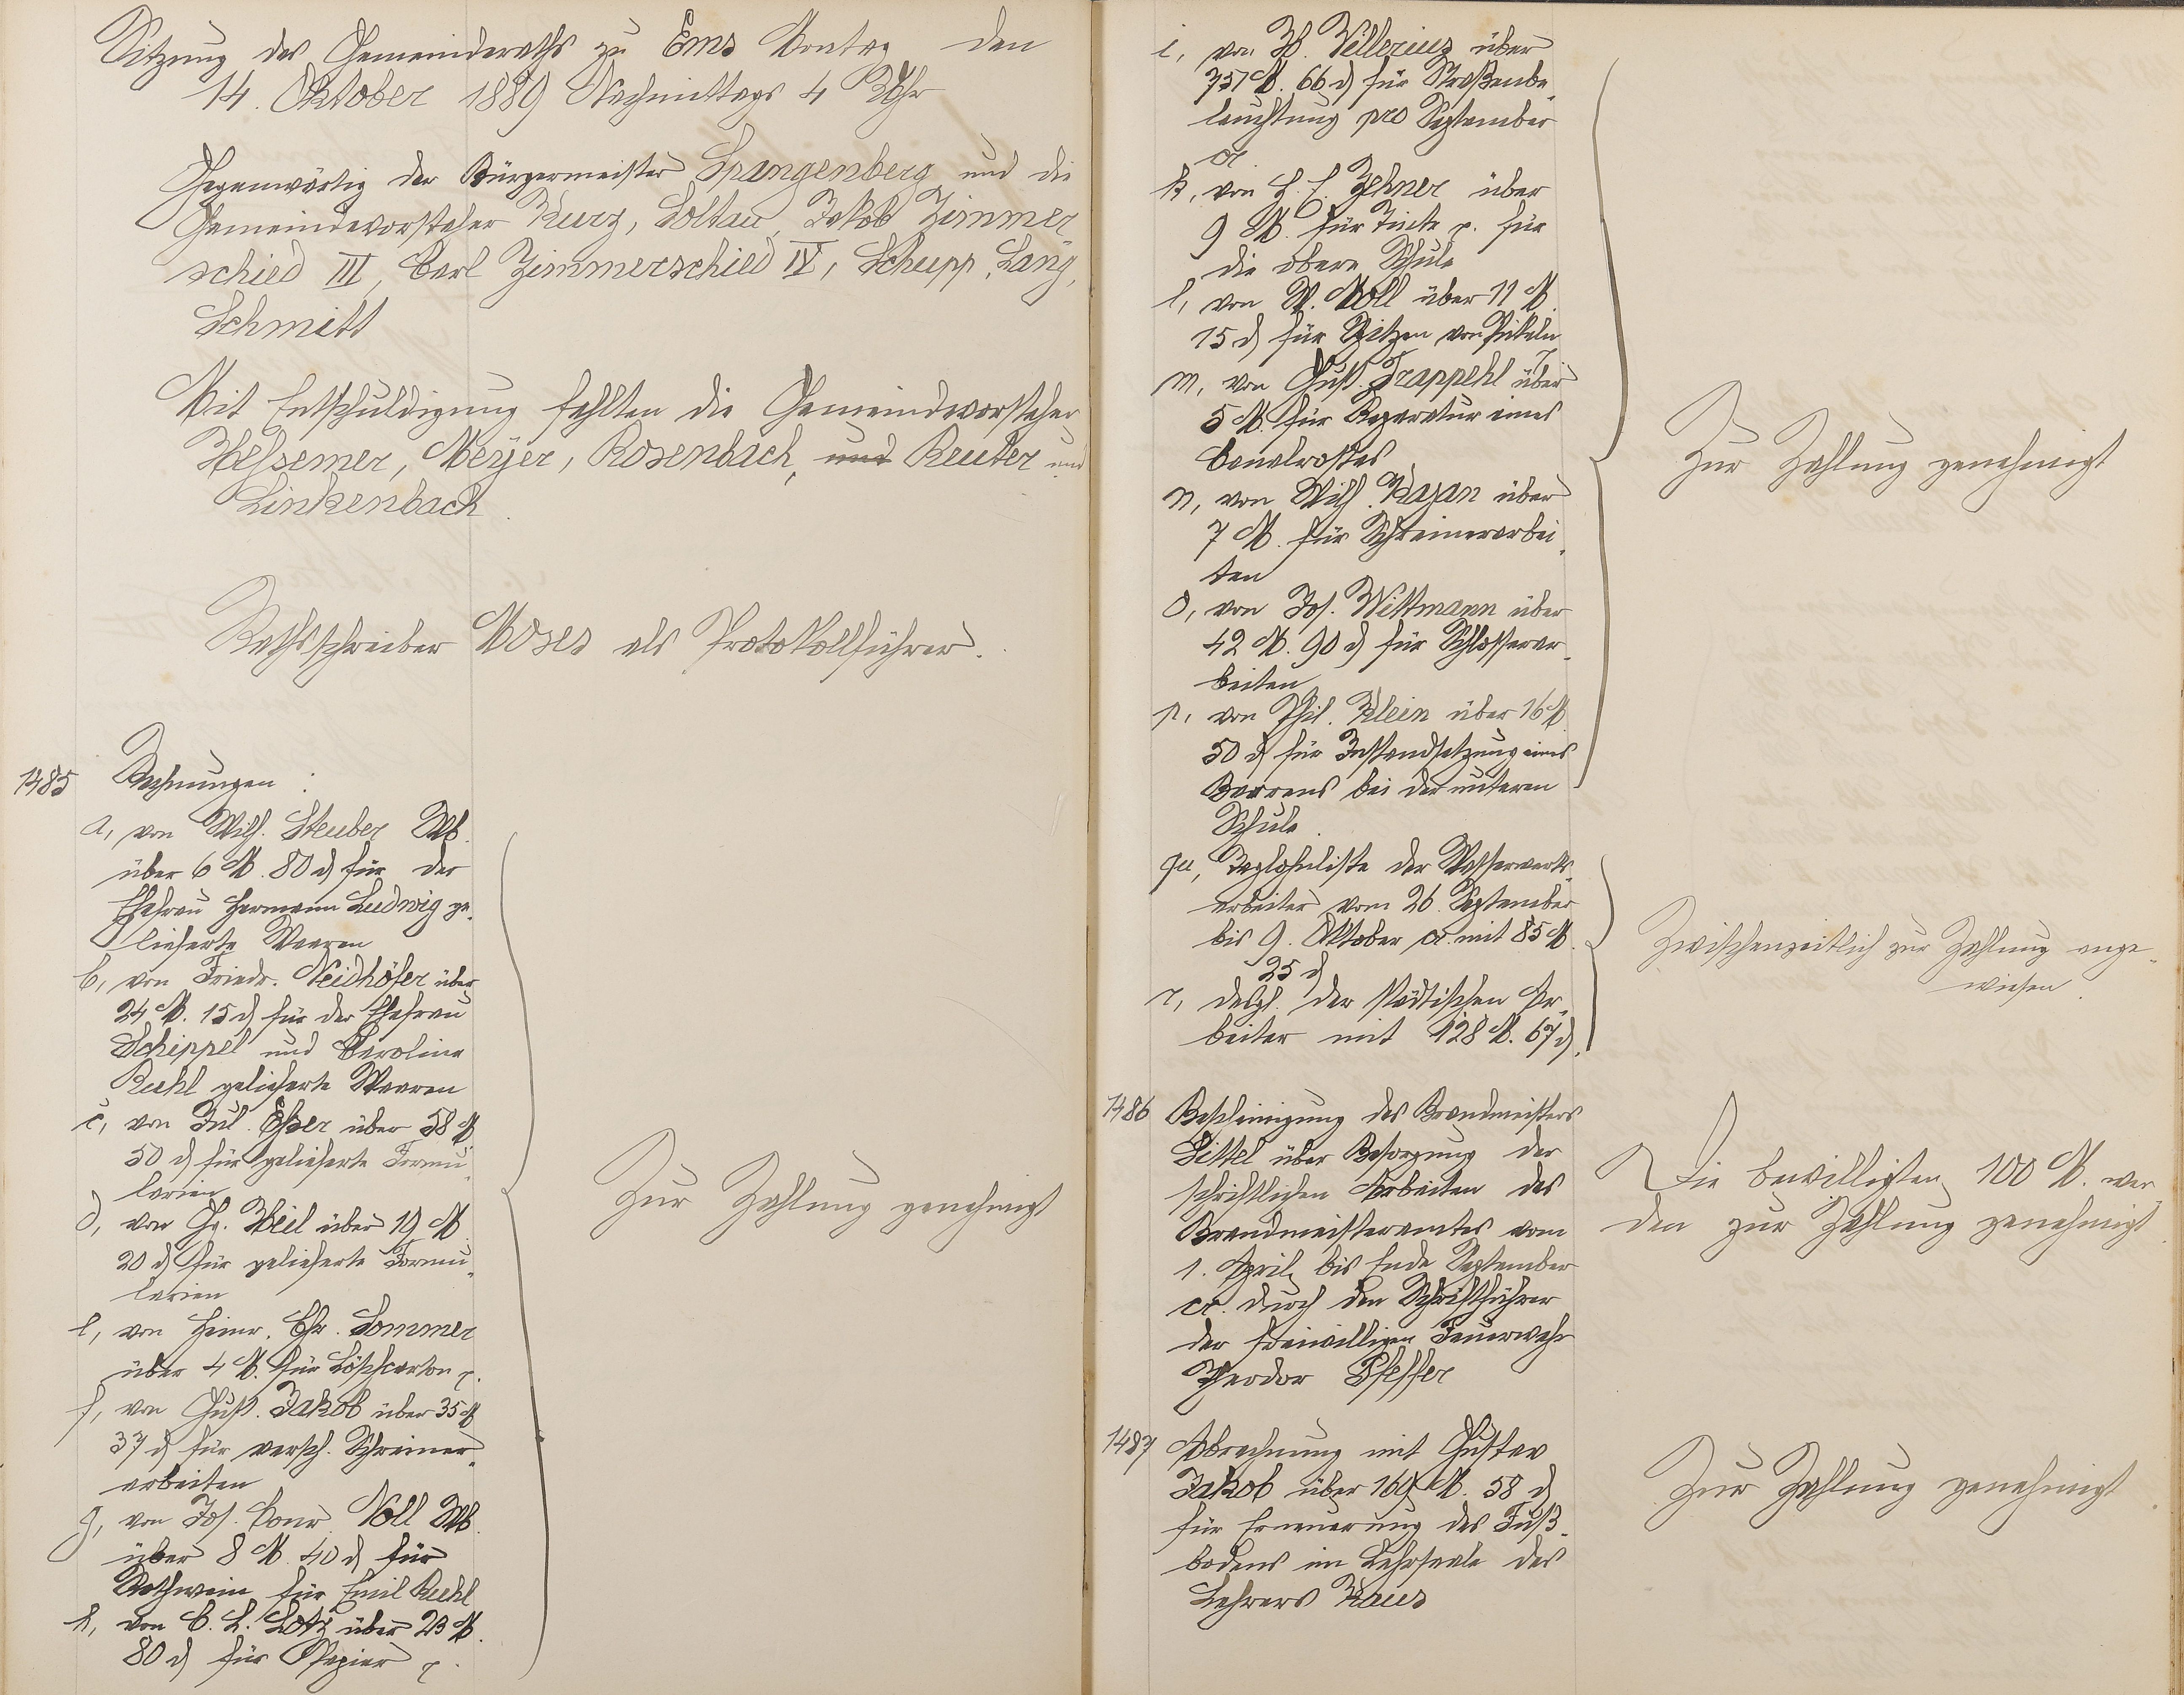 Sitzung des Gemeinderaths zu Ems Montag den
14. Oktober 1889 Nachmittags 4 Uhr
Gegenwärtig der Bürgermeister Spangenberg und die
Gemeindevorsteher Kurz, Soltau, Jakob Zimmer
schied III, Carl Zimmerschied IV, Schupp, Lang,
Schmitt
Mit Entschuldigung fehlten die Gemeindevorsteher
Hessemer, Meyer, Rosenbach, und Reuter und
Linkenbach.
Rathsschreiber Moses als Protokollführer.
1485 Rechnungen:
a, von Wilh. Steuber Wb.
über 6 M. 80 d für der
Ehefrau Hermann Ludwig ge-
lieferte Waaren
b, von Friedr. Neidhöfer über
24 M. 15 d für der Ehefrau
Schippel und Caroline
Ruhl gelieferte Waaren
c, von Jul. Eßer über 58 M
50 d für gelieferte Formu-
larien
d, von Hg. Heil über 19 M.
20 d für gelieferte Formu-
larien
e, von Heinr. Chr. Sommer
über 4 M. für Löschcarton p.
f, von Gust. Jakob über 35 M
37 d für versch. Schreiner-
arbeiten
g, von Jos. Conr. Noll Wb.
über 8 M. 40 d für
Rothwein für Emil Ruhl
h, von C. L. Lotz über 23 M.
80 d für Papier p.
Zur Zahlung genehmigt
i, von H. Vellerius über
751 M. 66 d für Straßenbe-
leuchtung pro September
cr.
k, von H. C. Zehner über
9 M. für Tinte p. für
die obere Schule
l, von W. Noll über 11 M.
15 d für Spitzen von Pickeln
m, von Gust. Trappehl über
5 M. für Reparatur eines
Canalrostes
n, von Wilh. Kajan über
7 M. für Schreinerarbei-
ten
o, von Jos. Wittmann über
42 M. 90 d für Schlosserar-
beiten
p, von Phil. Klein über 16 M
50 d für Instandsetzung eines
Barrens bei der unteren
Schule.
Zur Zahlung genehmigt
qu, Taglohnliste der Wasserwerks-
arbeiter vom 26. September
bis 9. Oktober cr. mit 85 M.
25 d
r, desgl. der städtischen Ar-
beiter mit 128 M. 67 d.
Zwischenzeitlich zur Zahlung ange-
wiesen.
1486 Bescheinigung des Brandmeisters
Sittel über Besorgung der
schriftlichen Arbeiten des
Brandmeisteramtes vom
1. April bis Ende September
cr. durch den Schriftführer
der freiwilligen Feuerwehr
Theodor Pfeffer
Die bewilligten 100 M. wer-
den zur Zahlung genehmigt.
1487 Abrechnung mit Gustav
Jakob über 169 M. 58 d
für Erneuerung des Fuß-
bodens im Lehrsaale des
Lehrers Kaus
Zur Zahlung genehmigt.